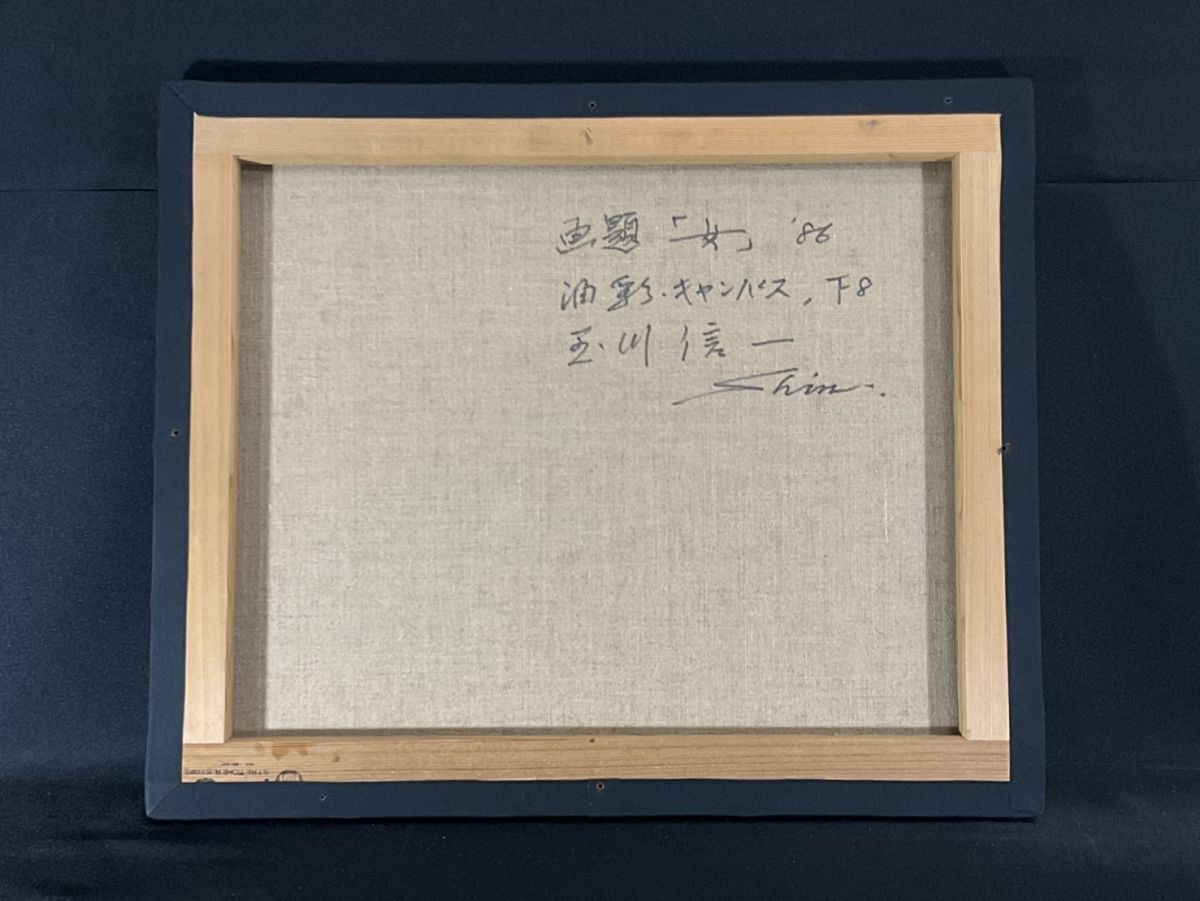 画題「女」 '86
油彩・キャンバス, F8
玉川信一
Shin.
STRETCHER STRIPS